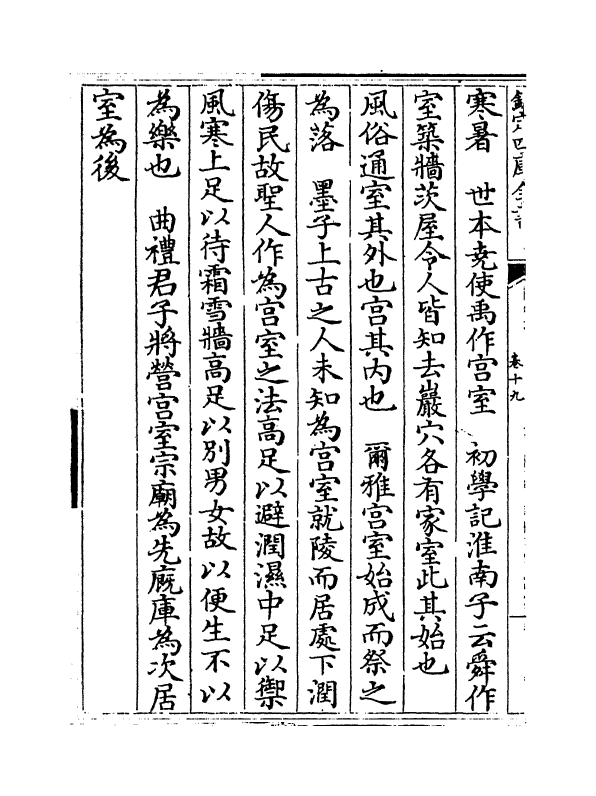 卷十九
寒暑　世本堯使禹作宫室　初學記淮南子云舜作
室築牆茨屋令人皆知去巖穴各有家室此其始也
風俗通室其外也宫其内也　爾雅宫室始成而祭之
為落　墨子上古之人未知為宫室就陵而居處下潤
傷民故聖人作為宫室之法高足以避潤濕中足以禦
風寒上足以待霜雪牆高足以别男女故以便生不以
為樂也　曲禮君子將營宫室宗廟為先廐庫為次居
室為後